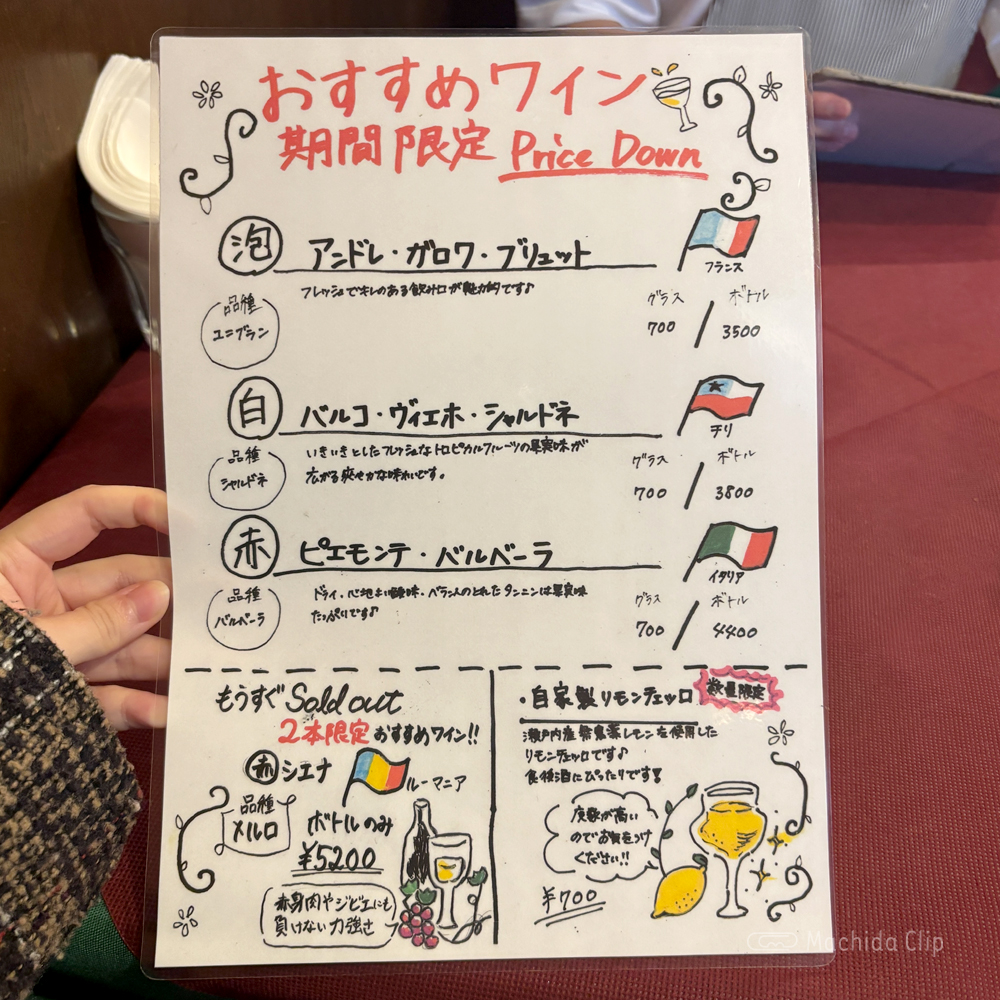 おすすめワイン
期間限定 Price Down
泡 アンドレ・ガロワ・ブリュット
フランス
フレッシュでキレのある飲み口が魅力的です♪
品種
ユニブラン
グラス ボトル
700 / 3500
白 バルコ・ヴィエホ・シャルドネ
チリ
いきいきとしたフレッシュなトロピカルフルーツの果実味が
広がる爽やかな味わいです。
品種
シャルドネ
グラス ボトル
700 / 3800
赤 ピエモンテ・バルベーラ
イタリア
ドライ、心地よい酸味・バランスのとれたタンニンは果実味
たっぷりです♪
品種
バルベーラ
グラス ボトル
700 / 4400
もうすぐ Sold out
2本限定 おすすめワイン!!
赤 シエナ
ルーマニア
品種
メルロ
ボトルのみ
¥5200
赤身肉やジビエにも
負けない力強さ
・自家製リモンチェッロ
数量限定
瀬戸内産 レモンを使用した
リモンチェッロです♪
食後酒にぴったりです!
度数が高い
のでお気をつけ
ください!!
¥700
Machida Clip